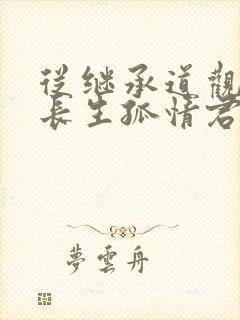 從继承道觀
長生孤情君
夢雲舟